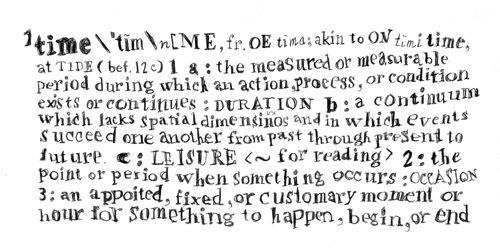 ¹time \ 'tīm \ n [ME, fr. OE tima; akin to ON timi time,
at TIDE (bef. 12c) 1 a : the measured or measurable
period during which an action, process, or condition
exists or continues : DURATION b : a continuum
which lacks spatial dimensinos and in which events
succeed one another from past through present to
future. c : LEISURE <~ for reading> 2 : the
point or period when something occurs : OCCASION
3 : an appoited, fixed, or customary moment or
hour for something to happen, begin, or end